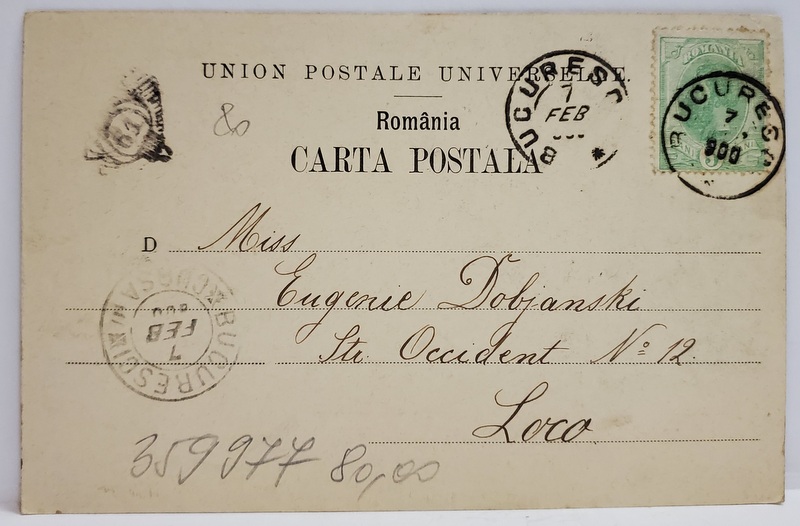 UNION POSTALE UNIVERSELLE.
România
CARTA POSTALA
80
61
BUCURESC
7
FEB
*
ROMANIA
5
BUCURESC
7
900
D Miss
Eugenie Dobjanski
Str. Occident No 12
Loco
BUCURESCI
7
FEB
900
359977 80,00